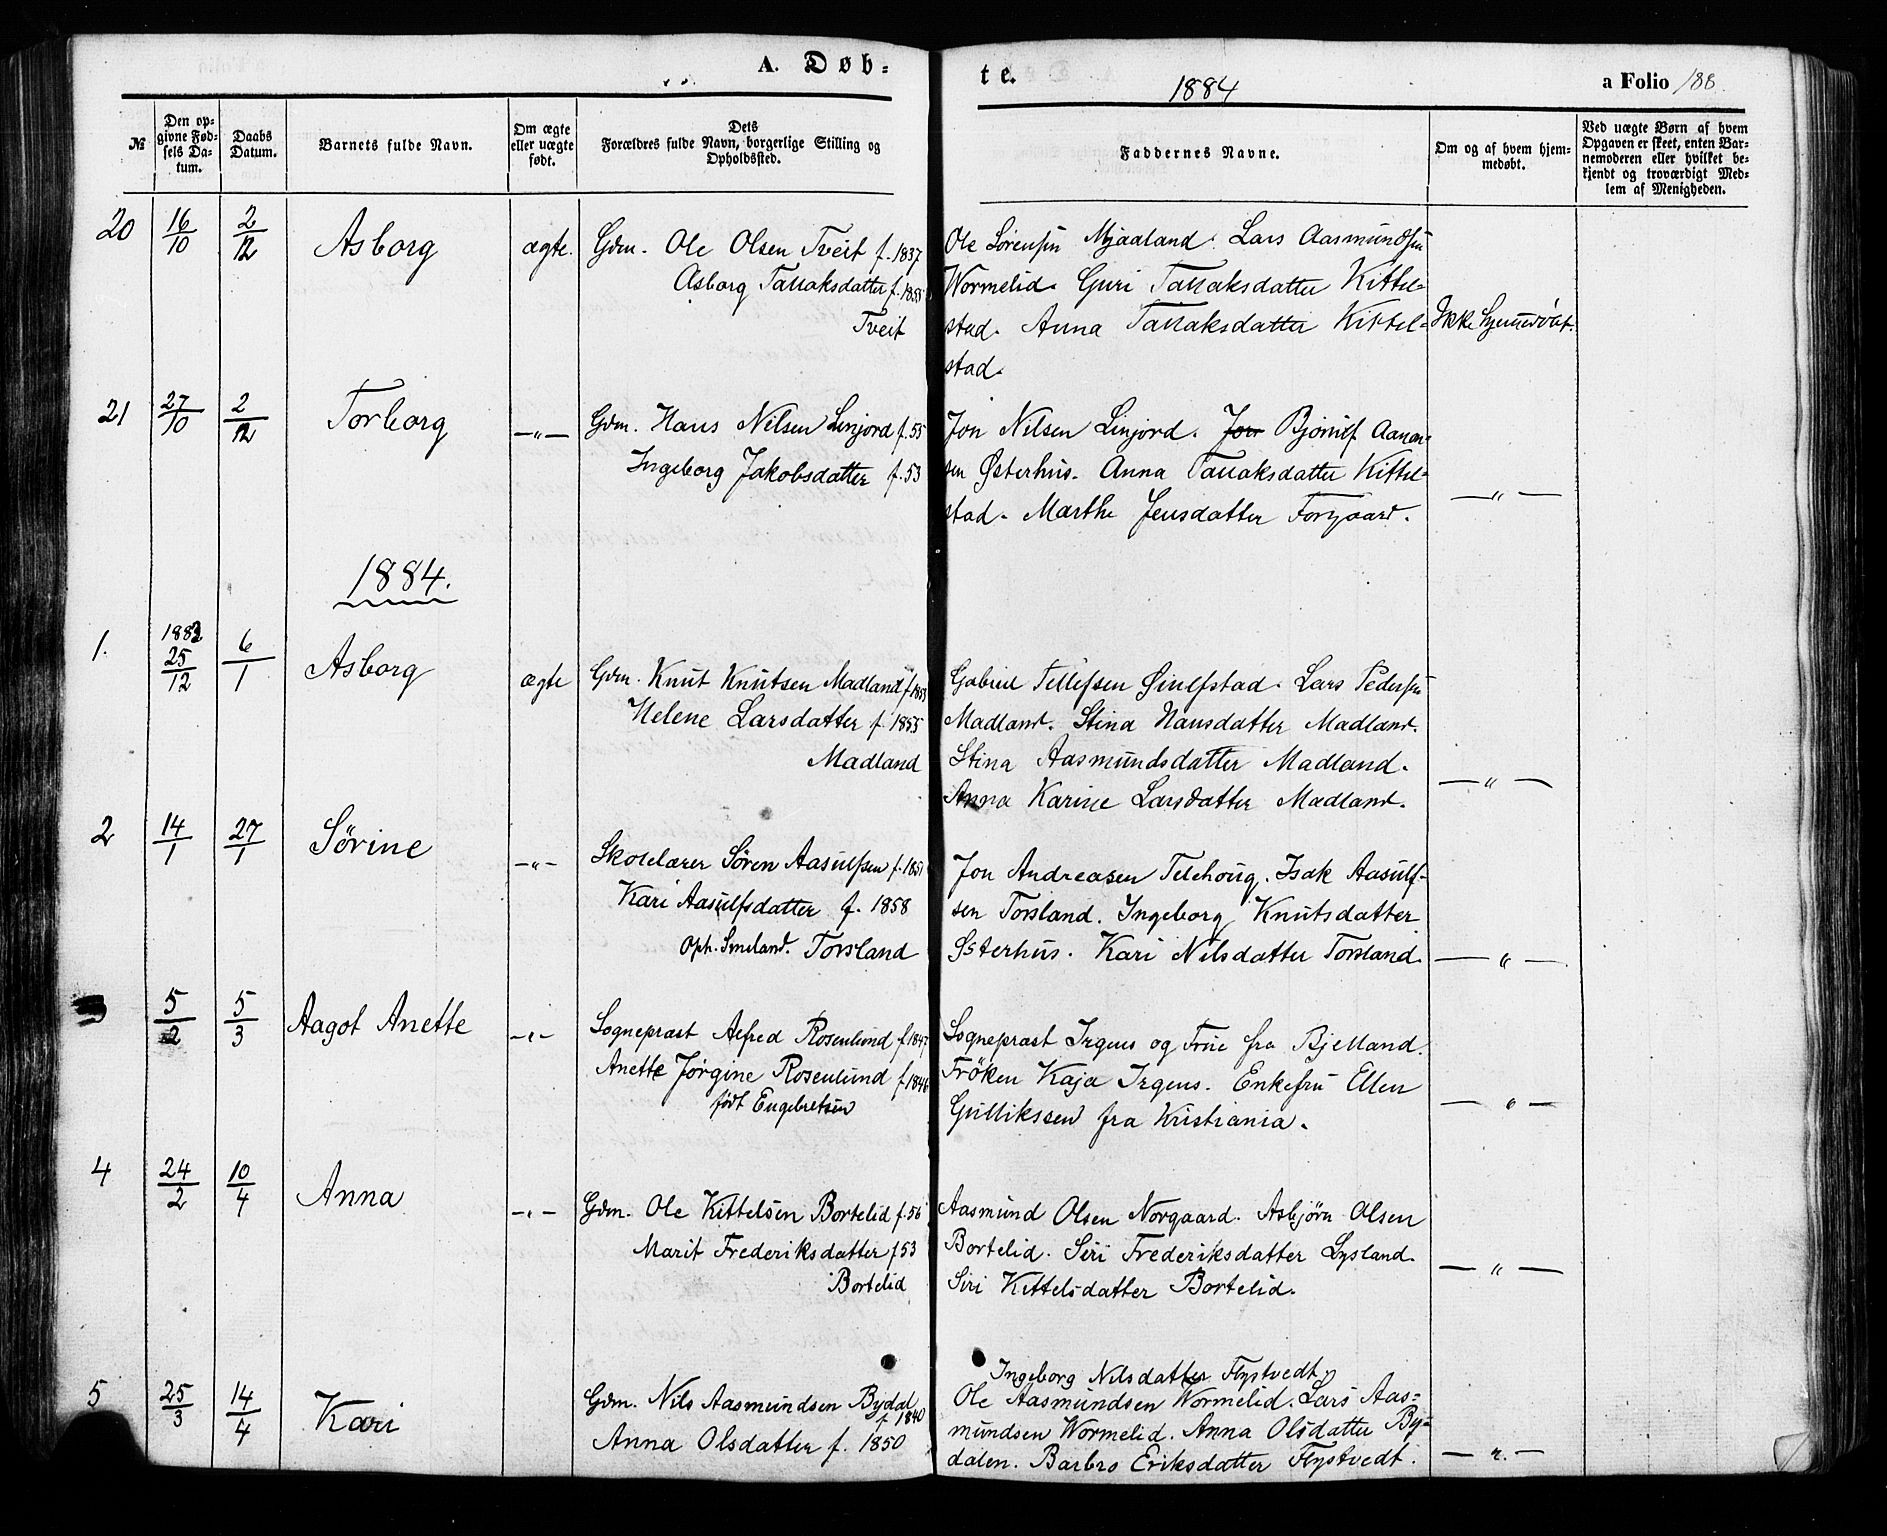 A. Døb-
te.
1884
a Folio 188.
№
Den op-
givne Fød-
sels Da-
tum.
Daabs
Datum.
Barnets fulde Navn.
Om ægte
eller uægte
født.
Dets
Forældres fulde Navn, borgerlige Stilling og
Opholdssted.
Faddernes Navne.
Om og af hvem hjem-
medøbt.
Ved uægte Børn af hvem
Opgaven er skeet, enten Bar-
nemoderen eller hvilket be-
kjendt og troværdigt Med-
lem af Menigheden.
20 16/10 2/12 Asborg ægte. Gdm. Ole Olsen Tveit f. 1837
Asborg Tallaksdatter f. 1855
Tveit
Ole Sørensen Mjaaland. Lars Aasmundsen
Wormelid. Guri Tallaksdatter Kittel-
stad. Anna Tallaksdatter Kittel-
stad.
Ikke hjemmedøbt.
21 27/10 2/12 Torborg —"— Gdm. Hans Nilsen Linjord f. 55
Ingeborg Jakobsdatter f. 53
Jon Nilsen Linjord. Jon Bjørnulf Aanon-
sen Østerhus. Anna Tallaksdatter Kittel-
stad. Marthe Jensdatter Forgaard.
—"—
1884.
1. 1883 25/12 6/1 Asborg ægte Gdm. Knut Knutsen Madland f. 1853
Helene Larsdatter f. 1855
Madland
Gabriel Tellefsen Øiulfstad. Lars Pedersen
Madland. Stina Hansdatter Madland.
Stina Aasmundsdatter Madland.
Anna Karine Larsdatter Madland.
—"—
2 14/1 27/1 Sørine —"— Skolelærer Søren Aasulfsen f. 1851
Kari Aasulfsdatter f. 1858
Oph. Smeland. Torsland
Jon Andreasen Telehoug. Isak Aasulf-
sen Torsland. Ingeborg Knutsdatter
Østerhus. Kari Nilsdatter Torsland.
—"—
3 5/2 5/3 Aagot Anette —"— Sognepræst Alfred Rosenlund f. 1847
Anette Jørgine Rosenlund f. 1846
født Engebretsen
Sognepræst Irgens og Frue fra Bjelland.
Frøken Kaja Irgens. Enkefru Ellen
Gullikssen fra Kristiania.
—"—
4 24/2 10/4 Anna —"— Gdm. Ole Kittelsen Bortelid f. 56
Marit Frederiksdatter f 53
Bortelid
Aasmund Olsen Norgaard. Asbjørn Olsen
Bortelid. Siri Frederiksdatter Lysland.
Siri Kittelsdatter Bortelid.
—"—
5 25/3 14/4 Kari Gdm. Nils Aasmundsen Bydal
f 1840
Anna Olsdatter f. 1850
Ingeborg Nilsdatter Flystvedt
Ole Aasmundsen Wormelid. Lars Aas-
mundsen Wormelid. Anna Olsdatter By-
dalen. Barbro Eriksdatter Flystvedt.
—"—